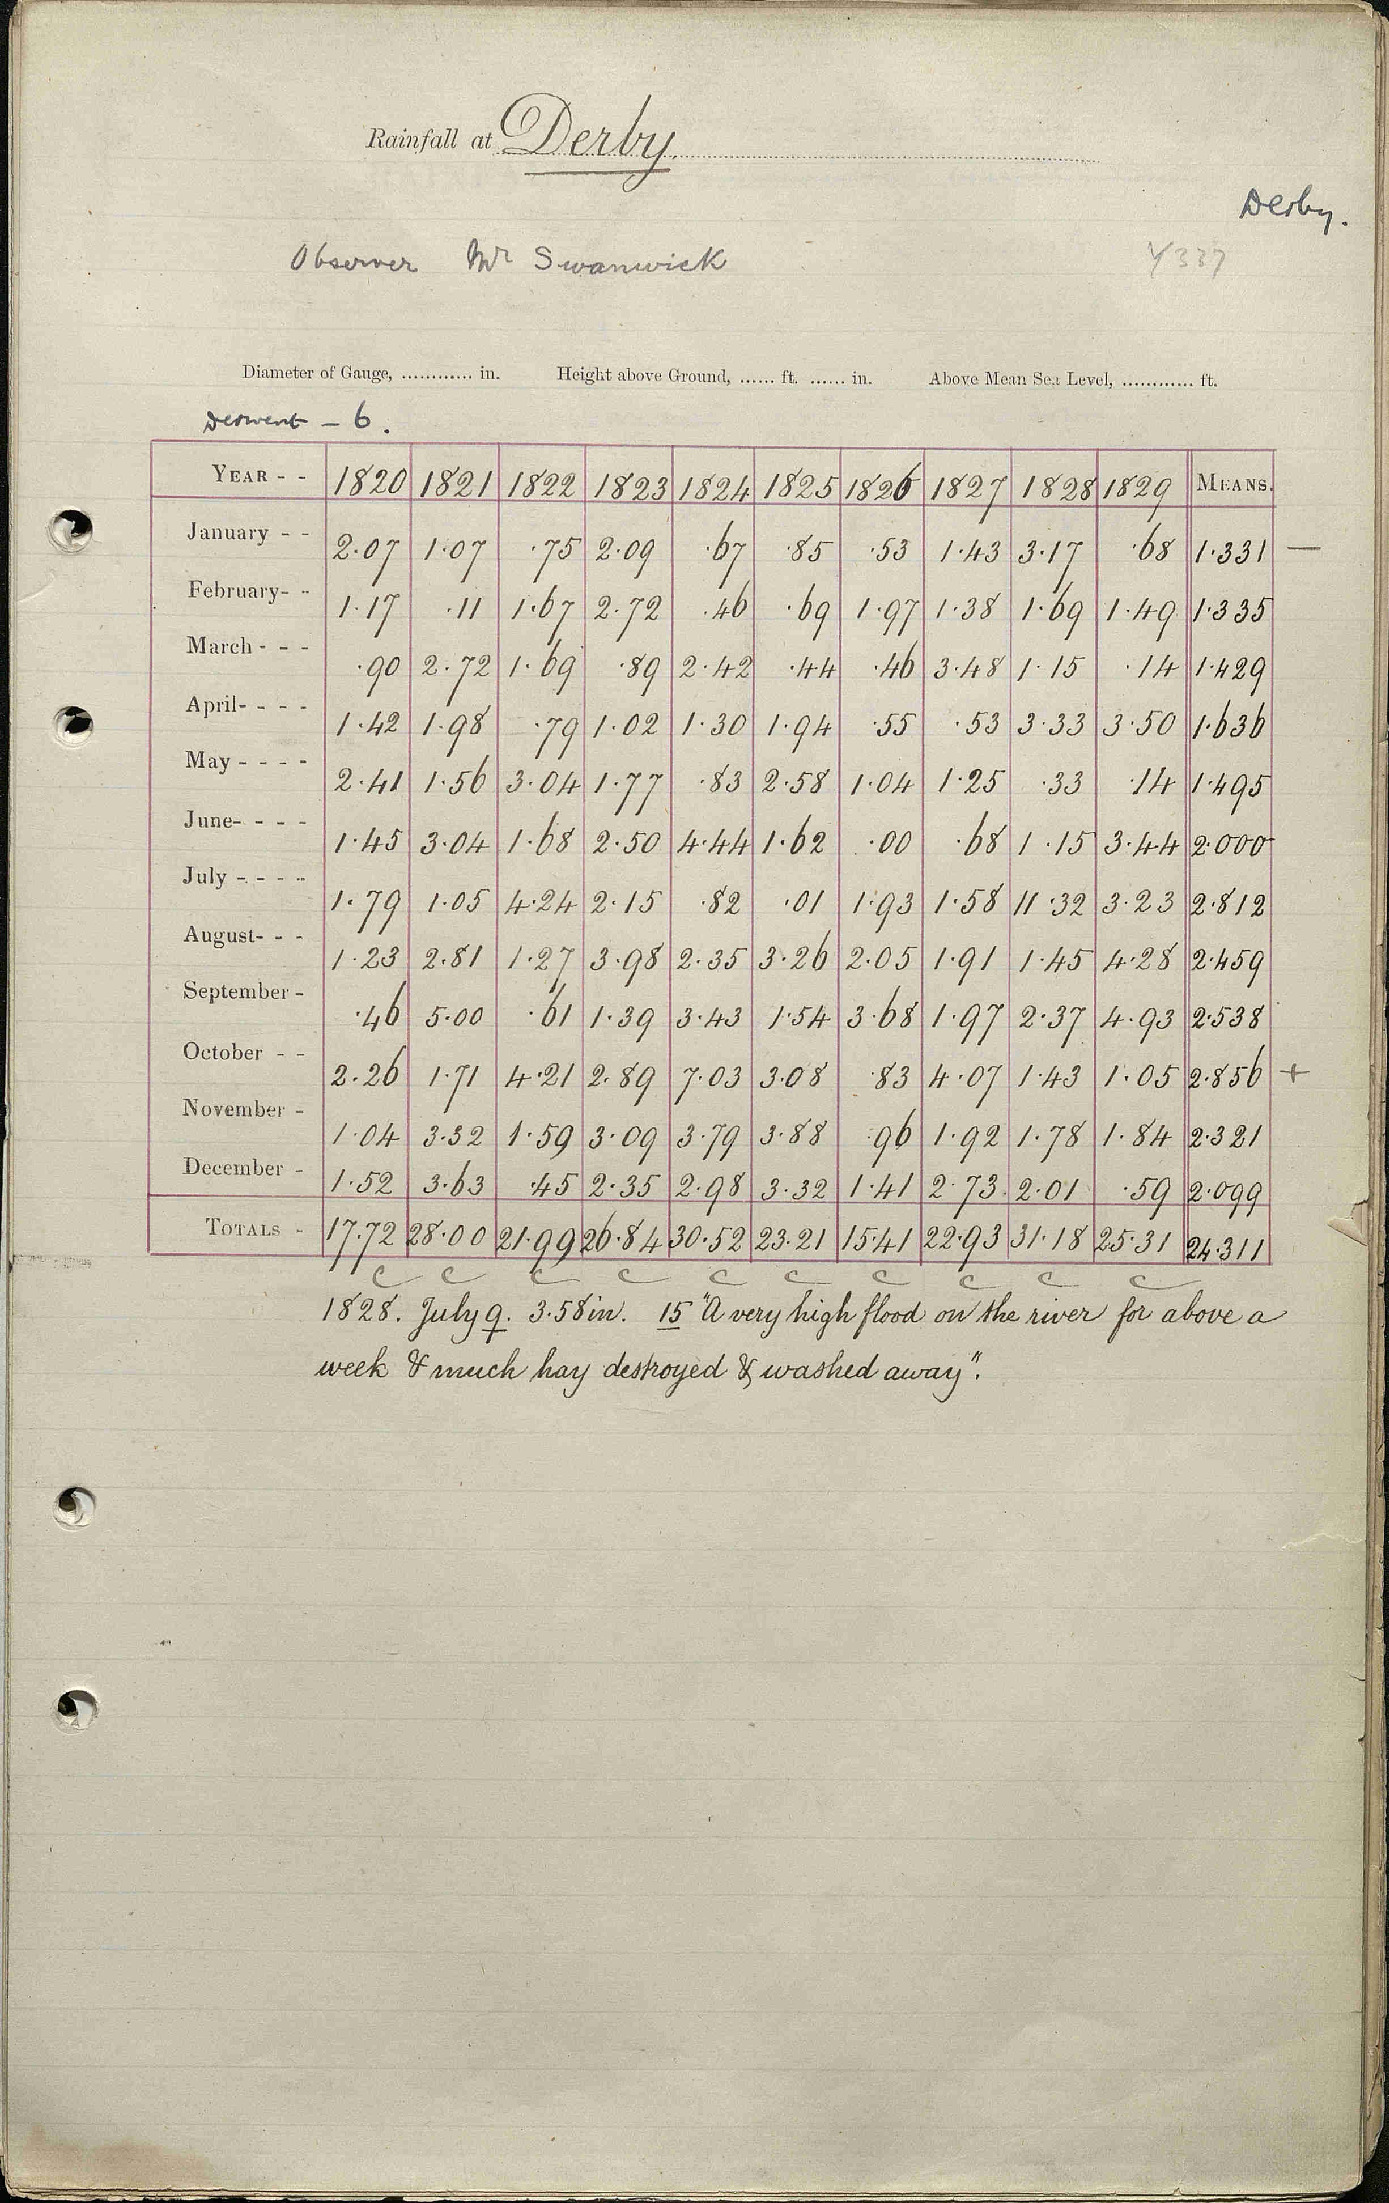 Rainfall at Derby.
Derby.
Observer Mr Swanwick
Y337
Diameter of Gauge, ............ in. Height above Ground, ...... ft. ...... in. Above Mean Sea Level, ............ ft.
Derwent - 6.
YEAR - - 1820 1821 1822 1823 1824 1825 1826 1827 1828 1829 MEANS.
January - - 2.07 1.07 .75 2.09 .67 .85 .53 1.43 3.17 .68 1.331 —
February- - 1.17 .11 1.67 2.72 .46 .69 1.97 1.38 1.69 1.49 1.335
March - - - .90 2.72 1.69 .89 2.42 .44 .46 3.48 1.15 .14 1.429
April- - - - 1.42 1.98 .79 1.02 1.30 1.94 .55 .53 3.33 3.50 1.636
May - - - - 2.41 1.56 3.04 1.77 .83 2.58 1.04 1.25 .33 .14 1.495
June- - - - 1.45 3.04 1.68 2.50 4.44 1.62 .00 .68 1.15 3.44 2.000
July - - - - 1.79 1.05 4.24 2.15 .82 .01 1.93 1.58 11.32 3.23 2.812
August- - - 1.23 2.81 1.27 3.98 2.35 3.26 2.05 1.91 1.45 4.28 2.459
September - .46 5.00 .61 1.39 3.43 1.54 3.68 1.97 2.37 4.93 2.538
October - - 2.26 1.71 4.21 2.89 7.03 3.08 .83 4.07 1.43 1.05 2.856 +
November - 1.04 3.32 1.59 3.09 3.79 3.88 .96 1.92 1.78 1.84 2.321
December - 1.52 3.63 .45 2.35 2.98 3.32 1.41 2.73 2.01 .59 2.099
TOTALS - 17.72 28.00 21.99 26.84 30.52 23.21 15.41 22.93 31.18 25.31 24.311
c c c c c c c c c c
1828. July 9. 3.58in. 15 "A very high flood on the river for above a
week & much hay destroyed & washed away".